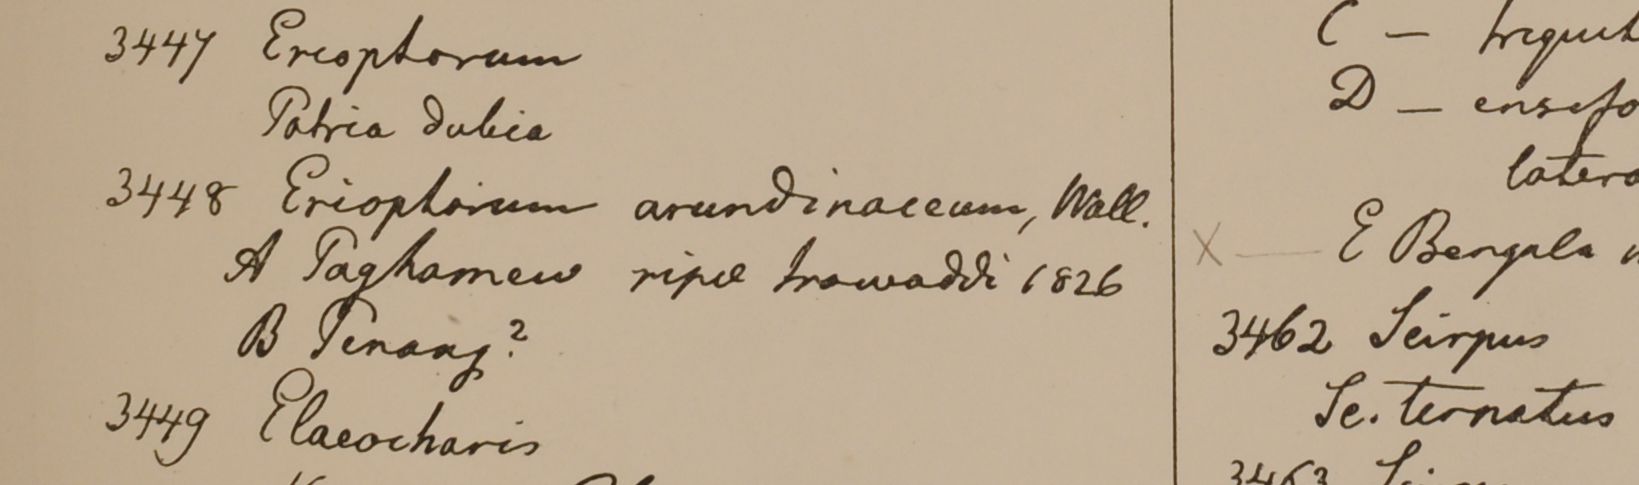 3447 Ereophorum
Patria dubia
3448 Eriophorum arundinaceum, Wall.
A Paghamew ripæ Irawaddi 1826
B Penang?
3449 Elaeocharis
C —
D — ensifo
latera
X — E Bengala
3462 Scirpus
Sc. ternatus
3463